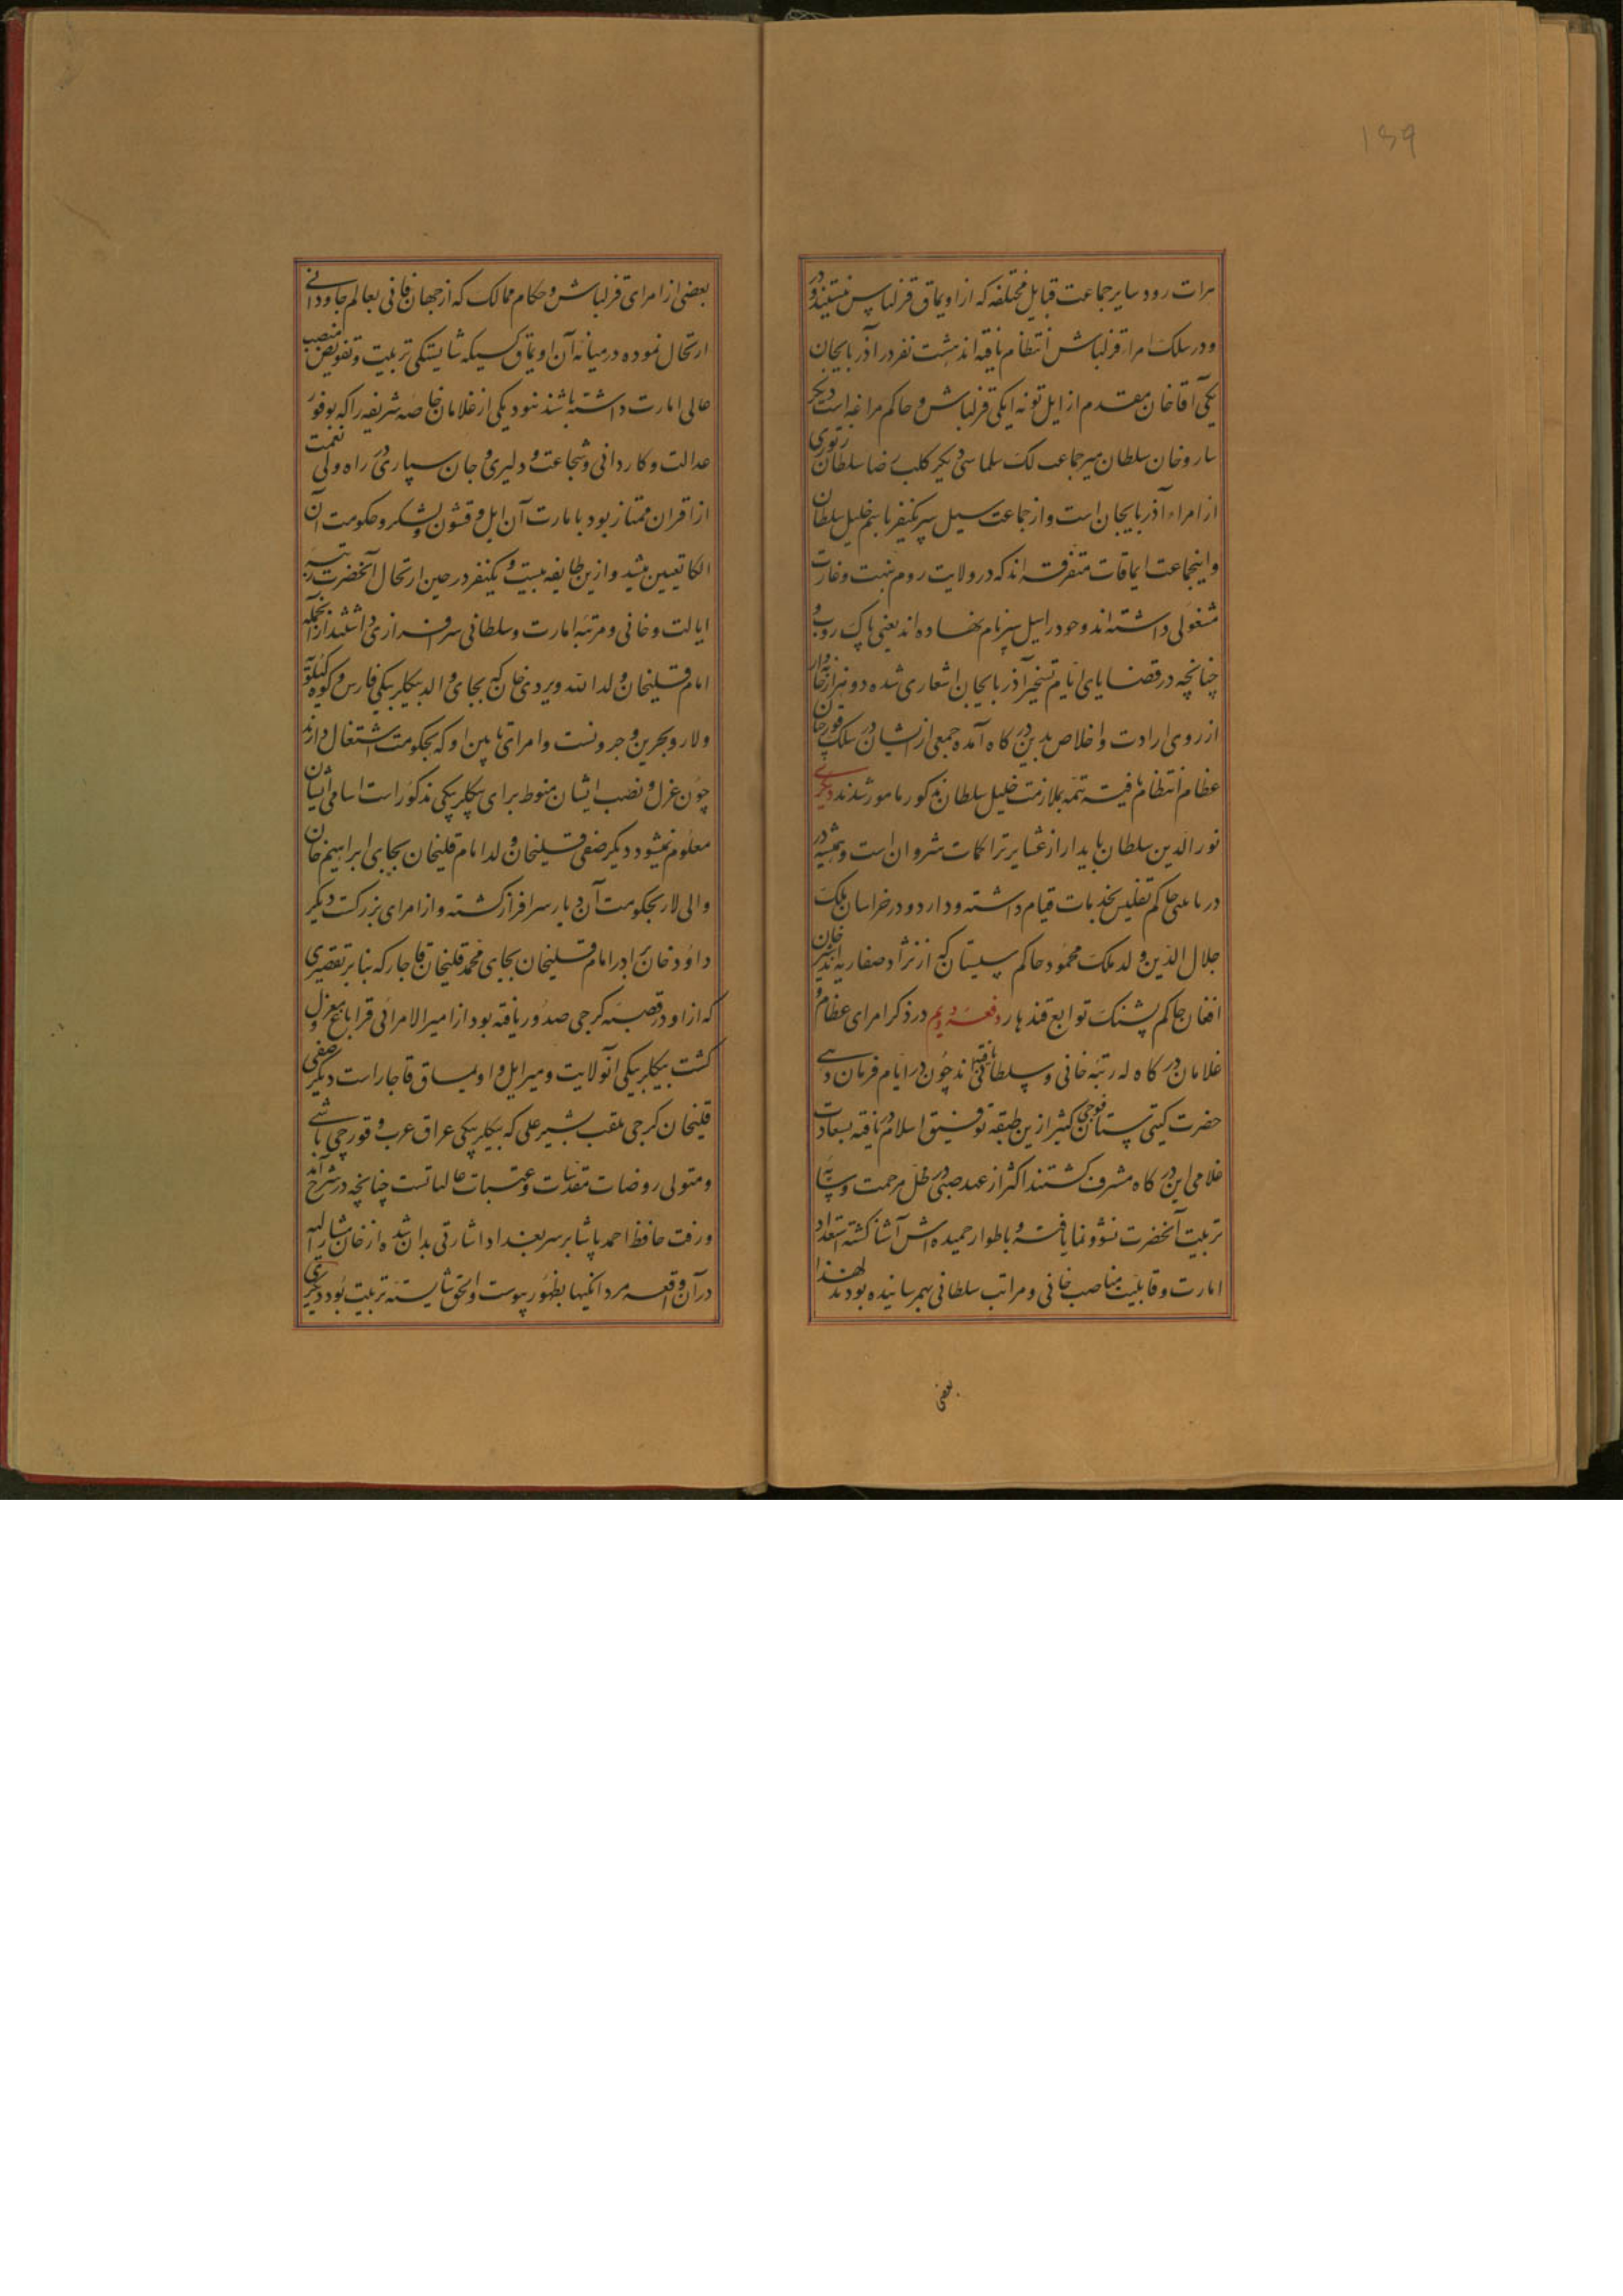 139
هرات رود سایر جماعت قبایل مختلفه که از اویماق قزلباش نیستند و در
و در سلک امراء قزلباش انتظام یافته اند هشت نفر در آذربایجان
یکی آقاخان مقدم از ایل توته ایکی قزلباش و حاکم مراغه است دیگر
ساروخان سلطان میر جماعت لک سلماسی دیگر کلب رضا سلطان
از امراء آذربایجان است و از جماعت سیل سپر یکنفر باسم خلیل سلطان
و اینجماعت ایماقات متفرقه اند که در ولایت روم بنهب و غارت
مشغولی داشته اند و خود را سیل سپر نام نهاده اند یعنی پاک روب و
چنانچه در قضایای ایام تسخیر آذربایجان اشعاری شده دو هزار خانوار
از روی ارادت و اخلاص بدین درکاه آمده جمعی از ایشان در سلک قورچیان
عظام انتظام یافته تتمه بملازمت خلیل سلطان مذکور مامور شدند دیگری
نور الدین سلطان از عشایر تراکمات شروان است و همیشه در
حاکم تفلیس بخدمات قیام داشته و دارد و در خراسان ملک
جلال الدین ولد ملک محمود حاکم سیستان که از نژاد صفاریه اند شیر خان
افغان حاکم پشنک توابع قندهار دفعه دویم در ذکر امرای عظام و
غلامان درکاه که رتبه خانی و سلطانی یافته اند چون در ایام فرمان دهی
حضرت کیتی ستان فوجی کثیر از ین طبقه توفیق اسلام دریافته بسعادت
غلامی این درکاه مشرف کشتند اکثر از عهد صبی در ظل مرحمت و سایه
تربیت آنحضرت نشو و نما یافته و باطوار حمیده اش آشنا کشته استعداد
امارت و قابلیت مناصب خانی و مراتب سلطانی بهمرسانیده بودند لهذا
بعضی
بعضی از امرای قزلباش و حکام ممالک که از جهان فانی بعالم جاودانی
ارتحال نموده در میانه آن اویماق کسیکه شایستکی تربیت و تفویض منصب
عالی امارت داشته باشند نبود یکی از غلامان خاصه شریفه را که بوفور
عدالت و کاردانی و شجاعت و دلیری و جان سپاری در راه ولی نعمت
از اقران ممتاز بود بامارت آن ایل و قشون و لشکر و حکومت آن
الکا تعیین میشد و ازین طایفه بیست و یکنفر در حین ارتحال آنحضرت رتبه
ایالت و خانی و مرتبه امارت و سلطانی سرافرازی داشتند از آنجمله
امام قلیخان ولد الله ویردی خان که بجای والد بیکلربیکی فارس و کوه کیلویه
و لار و بحرین و جرونست و امرای تابین او که بحکومت اشتغال دارند
چون عزل و نصب ایشان منوط برای بیکلربیکی مذکور است اسامی ایشان
معلوم نمیشود دیگر صفی قلیخان ولد امام قلیخان بجای ابراهیم خان
والی لار بحکومت آن دیار سرافراز کشته و از امرای بزرکست دیگر
داود خان برادر امام قلیخان بجای محمد قلیخان قاجار که بنا بر تقصیری
که از او در قضیه کرجی صدور یافته بود از امیر الامرائی قراباغ معزول و
کشت بیکلربیکی انولایت و میر ایل و اویماق قاجار است دیگر صفی
قلیخان کرجی ملقب بشیر علی که بیکلربیکی عراق عرب و قورچی باشی
و متولی روضات مقدسات و عتبات عالیاتست چنانچه در شرح آمد
و رفت حافظ احمد پاشا بر سر بغداد اشارتی بدان شده از خان مشار الیه
در آن واقعه مردانکیها بظهور پیوست و الحق شایسته تربیت بود دیگری